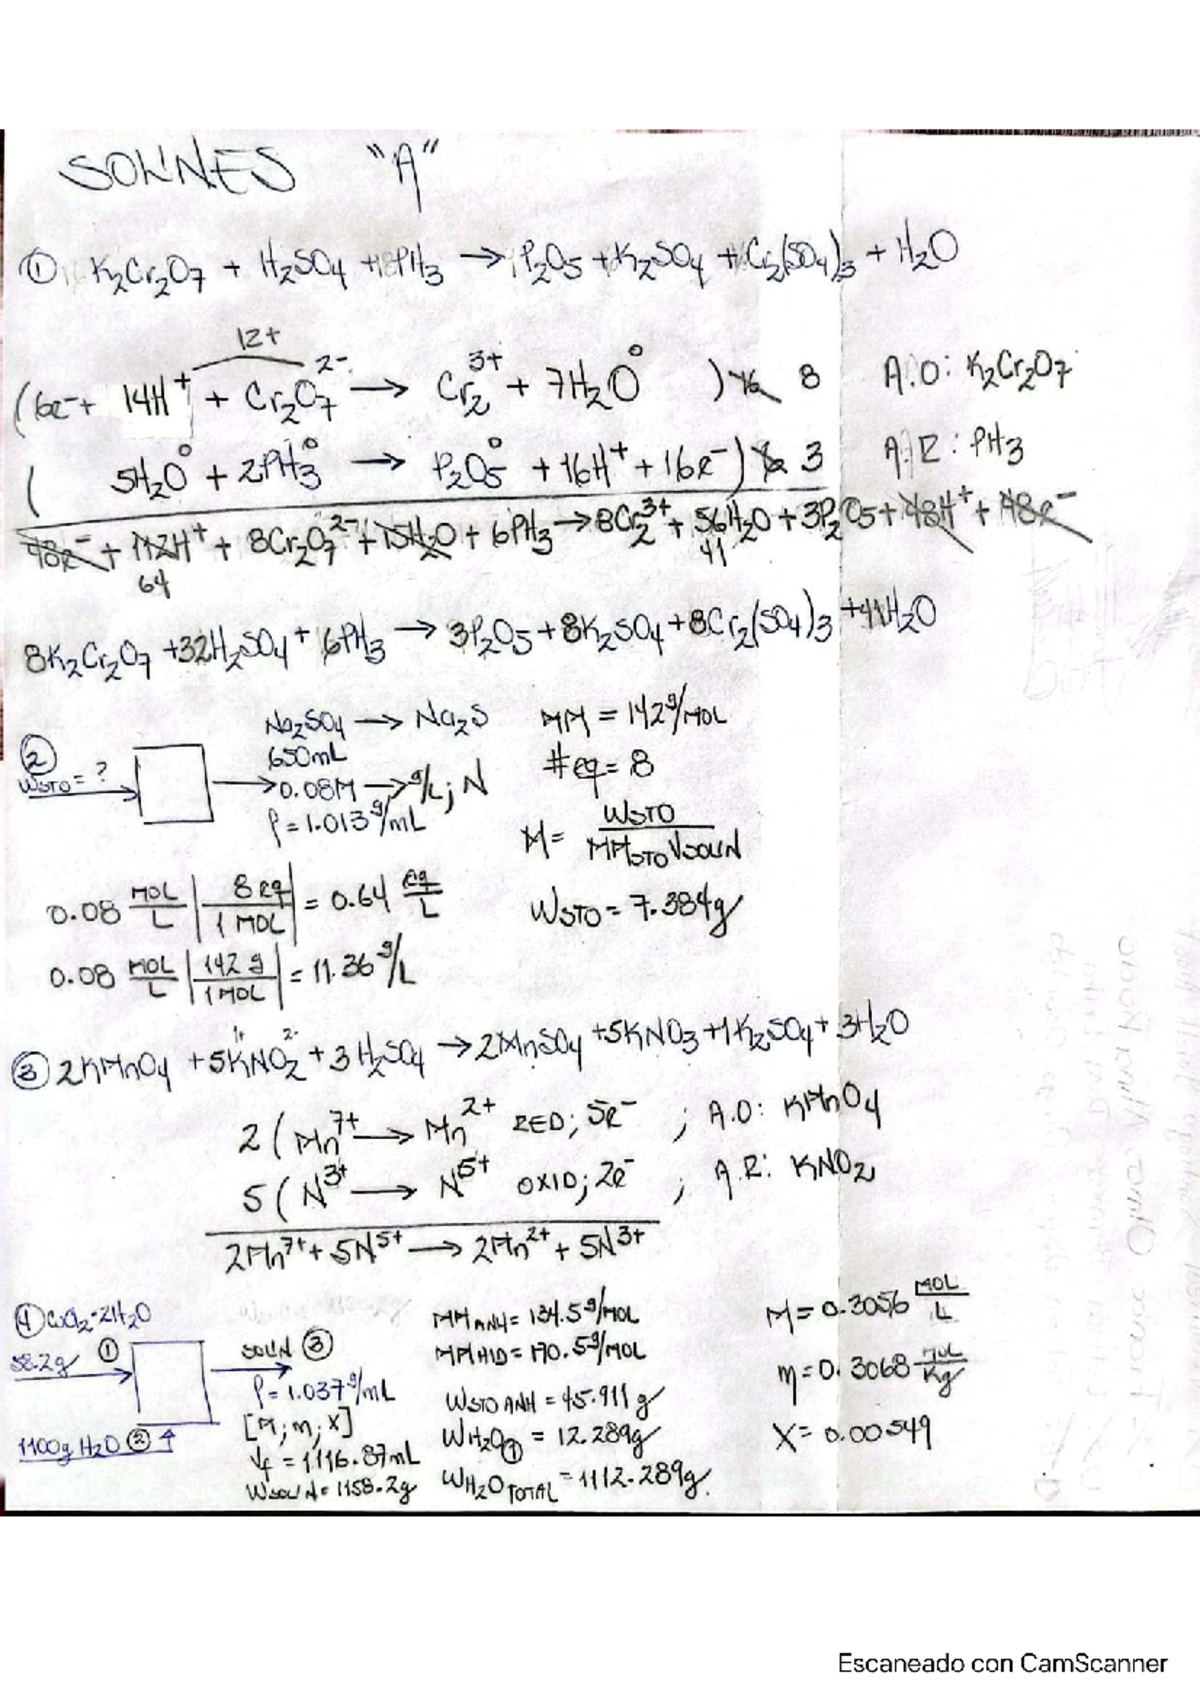 SOLNES "A"
① K₂Cr₂O₇ + H₂SO₄ + PH₃ → P₂O₅ + K₂SO₄ + Cr₂(SO₄)₃ + H₂O
12+
(6e⁻ + 14H⁺ + Cr₂O₇²⁻ → Cr₂³⁺ + 7H₂O⁰ ) 8 A.O: K₂Cr₂O₇
( 5H₂O⁰ + 2PH₃⁰ → P₂O₅⁰ + 16H⁺ + 16e⁻ ) 3 A.R: PH₃
48e⁻ + 112H⁺ + 8Cr₂O₇²⁻ + 15H₂O + 6PH₃ → 8Cr₂³⁺ + 56H₂O + 3P₂O₅ + 48H⁺ + 48e⁻
64 41
8K₂Cr₂O₇ + 32H₂SO₄ + 6PH₃ → 3P₂O₅ + 8K₂SO₄ + 8Cr₂(SO₄)₃ + 41H₂O
② Na₂SO₄ → Na₂S MM = 142 g/MOL
WSTO = ? 650mL #eq = 8
0.08M → g/L; N
ρ = 1.013 g/mL M = WSTO / MMSTO VSOLN
0.08 MOL/L | 8 eq / 1 MOL | = 0.64 eq/L WSTO = 7.384g
0.08 MOL/L | 142 g / 1 MOL | = 11.36 g/L
1+ 2-
③ 2KMnO₄ + 5KNO₂ + 3H₂SO₄ → 2MnSO₄ + 5KNO₃ + 1K₂SO₄ + 3H₂O
2 ( Mn⁷⁺ → Mn²⁺ RED; 5e⁻ ; A.O: KMnO₄
5 ( N³⁺ → N⁵⁺ OXID; 2e⁻ ; A.R: KNO₂
2Mn⁷⁺ + 5N⁵⁺ → 2Mn²⁺ + 5N³⁺
④ CuCl₂·2H₂O MMANH = 134.5 g/MOL M = 0.3056 MOL/L
58.2g ① SOLN ③ MMHID = 170.5 g/MOL m = 0.3068 MOL/Kg
ρ = 1.037 g/mL WSTO ANH = 45.911g X = 0.00549
[M; m; X] WH₂O① = 12.289g
1100g H₂O ② Vf = 1116.87mL WH₂O TOTAL = 1112.289g.
WSOLN = 1158.2g
Escaneado con CamScanner